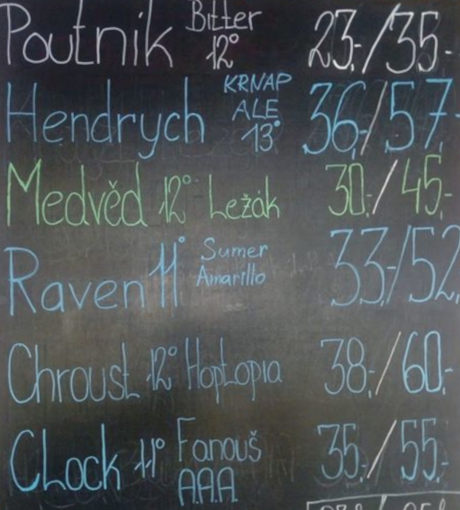 Poutník Bitter 12° 23,-/35,-
Hendrych KRNAP ALE 13° 36,-/57,-
Medvěd 12° Ležák 30,-/45,-
Raven 11° Sumer Amarillo 33,-/52,
Chroust 12° Hoptopia 38,-/60,-
CLock 11° Fanouš A.A.A. 35,-/55,-